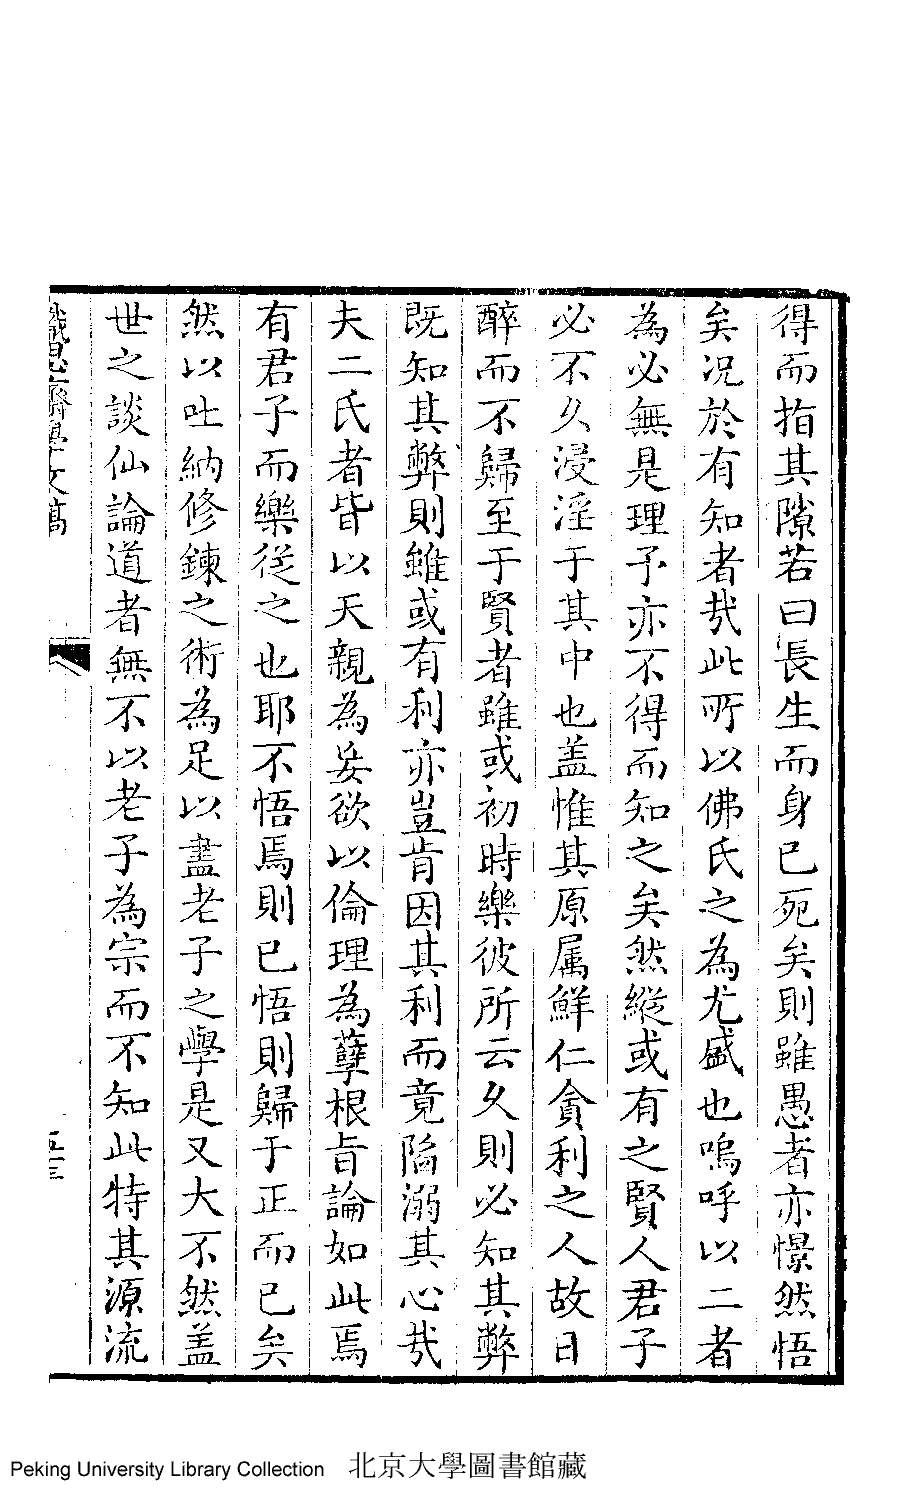 得而指其隙若曰長生而身已死矣則雖愚者亦憬然悟
矣况於有知者㢤此所以佛氏之為尤盛也嗚呼以二者
為必無是理予亦不得而知之矣然縱或有之賢人君子
必不久浸淫于其中也盖惟其原属鮮仁貪利之人故日
醉而不歸至于賢者雖或初時樂彼所云久則必知其弊
既知其弊則雖或有利亦豈肯因其利而竟陷溺其心㢤
夫二氏者皆以天親為妄欲以倫理為孽根旨論如此焉
有君子而樂從之也耶不悟焉則已悟則歸于正而已矣
然以吐納修鍊之術為足以盡老子之學是又大不然盖
世之談仙論道者無不以老子為宗而不知此特其源流
識思齋學文稿
五十三
Peking University Library Collection 北京大學圖書館藏